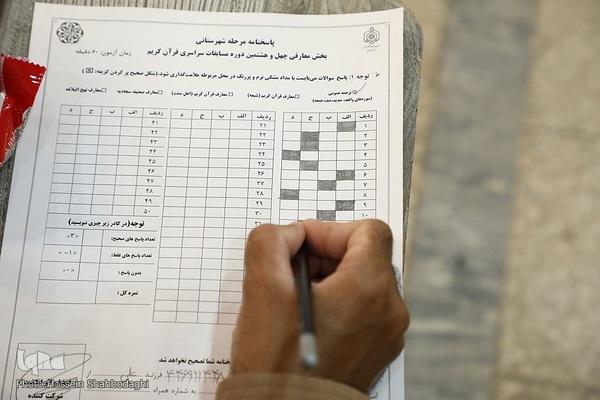 پاسخنامه مرحله شهرستانی
بخش معارفی چهل و هشتمین دوره مسابقات سراسری قرآن کریم
زمان آزمون: ۶۰ دقیقه
توجه ۱: پاسخ سوالات می‌بایست با مداد مشکی نرم و پررنگ در محل مربوطه علامت‌گذاری شود. (شکل صحیح پر کردن گزینه: ☒)
ترجمه عمومی
معارف قرآن کریم (شیعه)
معارف قرآن کریم (اهل سنت)
معارف صحیفه سجادیه
معارف نهج البلاغه
ردیف الف ب ج د
ردیف الف ب ج د
ردیف الف ب ج د
۱ ۲۱ ۴۱
۲ ۲۲ ۴۲
۳ ۲۳ ۴۳
۴ ۲۴ ۴۴
۵ ۲۵ ۴۵
۶ ۲۶ ۴۶
۷ ۲۷ ۴۷
۸ ۲۸ ۴۸
۹ ۲۹ ۴۹
۱۰ ۳۰ ۵۰
۳۱
توجه (در کادر زیر چیزی ننویسید)
تعداد پاسخ های صحیح: ×۳=
تعداد پاسخ های غلط: ×۱-=
بدون پاسخ: ×۰=
نمره کل:
نامه شما تصحیح نخواهد شد.
فرزند علی
به شماره همراه
شرکت کننده
iqna
Photo:Hossein Shahbodaghi